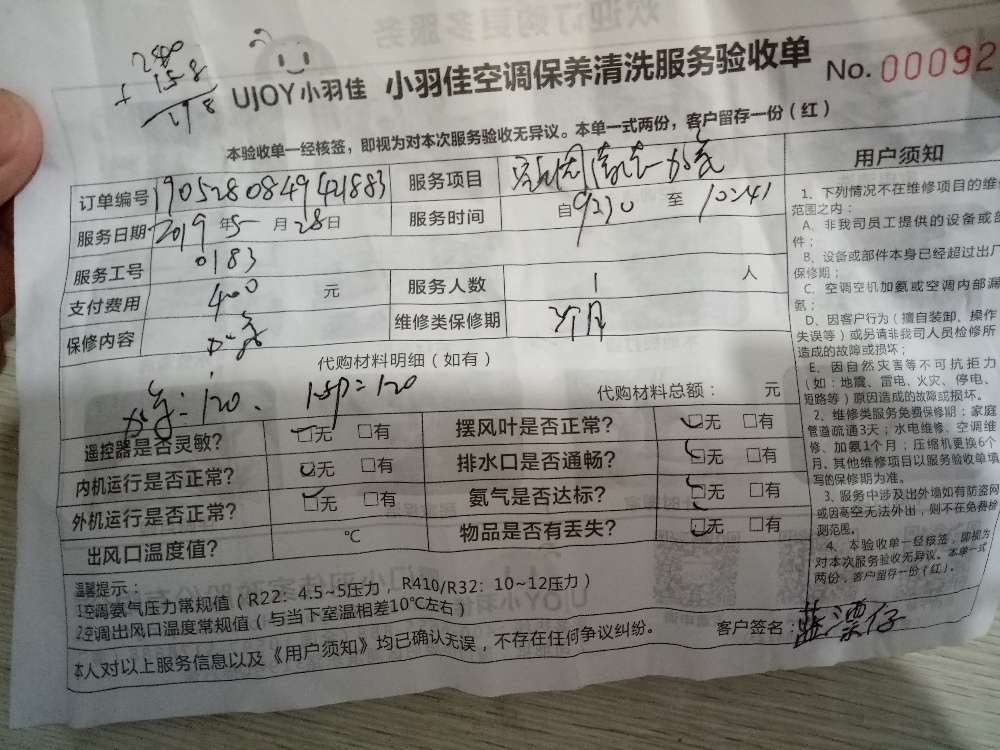 280
+ 158
UJOY小羽佳 小羽佳空调保养清洗服务验收单 No. 00092
本验收单一经核签，即视为对本次服务验收无异议。本单一式两份，客户留存一份（红）
订单编号 服务项目
服务日期 2019 年 5 月 28 日 服务时间 自 9:30 至 10:41
服务工号 0183
支付费用 400 元 服务人数 1 人
保修内容 维修类保修期
代购材料明细（如有）
120、 1.5P=120 代购材料总额： 元
遥控器是否灵敏? □无 □有 摆风叶是否正常? □无 □有
内机运行是否正常? □无 □有 排水口是否通畅? □无 □有
外机运行是否正常? □无 □有 氨气是否达标? □无 □有
出风口温度值? ℃ 物品是否有丢失? □无 □有
温馨提示：
1空调氨气压力常规值（R22：4.5~5压力，R410/R32：10~12压力）
2空调出风口温度常规值（与当下室温相差10℃左右）
本人对以上服务信息以及《用户须知》均已确认无误，不存在任何争议纠纷。 客户签名：蓝漂仔
用户须知
1、下列情况不在维修项目的维
范围之内：
A、非我司员工提供的设备或部
件；
B、设备或部件本身已经超过出厂
保修期；
C、空调空机加氨或空调内部漏
氨；
D、因客户行为（擅自装卸、操作
失误等）或另请非我司人员检修所
造成的故障或损坏；
E、因自然灾害等不可抗拒力
（如：地震、雷电、火灾、停电、
短路等）原因造成的故障或损坏。
2、维修类服务免费保修期：家庭
管道疏通3天；水电维修、空调维
修、加氨1个月；压缩机更换6个
月。其他维修项目以服务验收单填
写的保修期为准。
3、服务中涉及出外墙如有防盗网
或因高空无法外出，则不在免费检
测范围。
4、本验收单一经核签，即视为
对本次服务验收无异议。本单一式
两份，客户留存一份（红）。